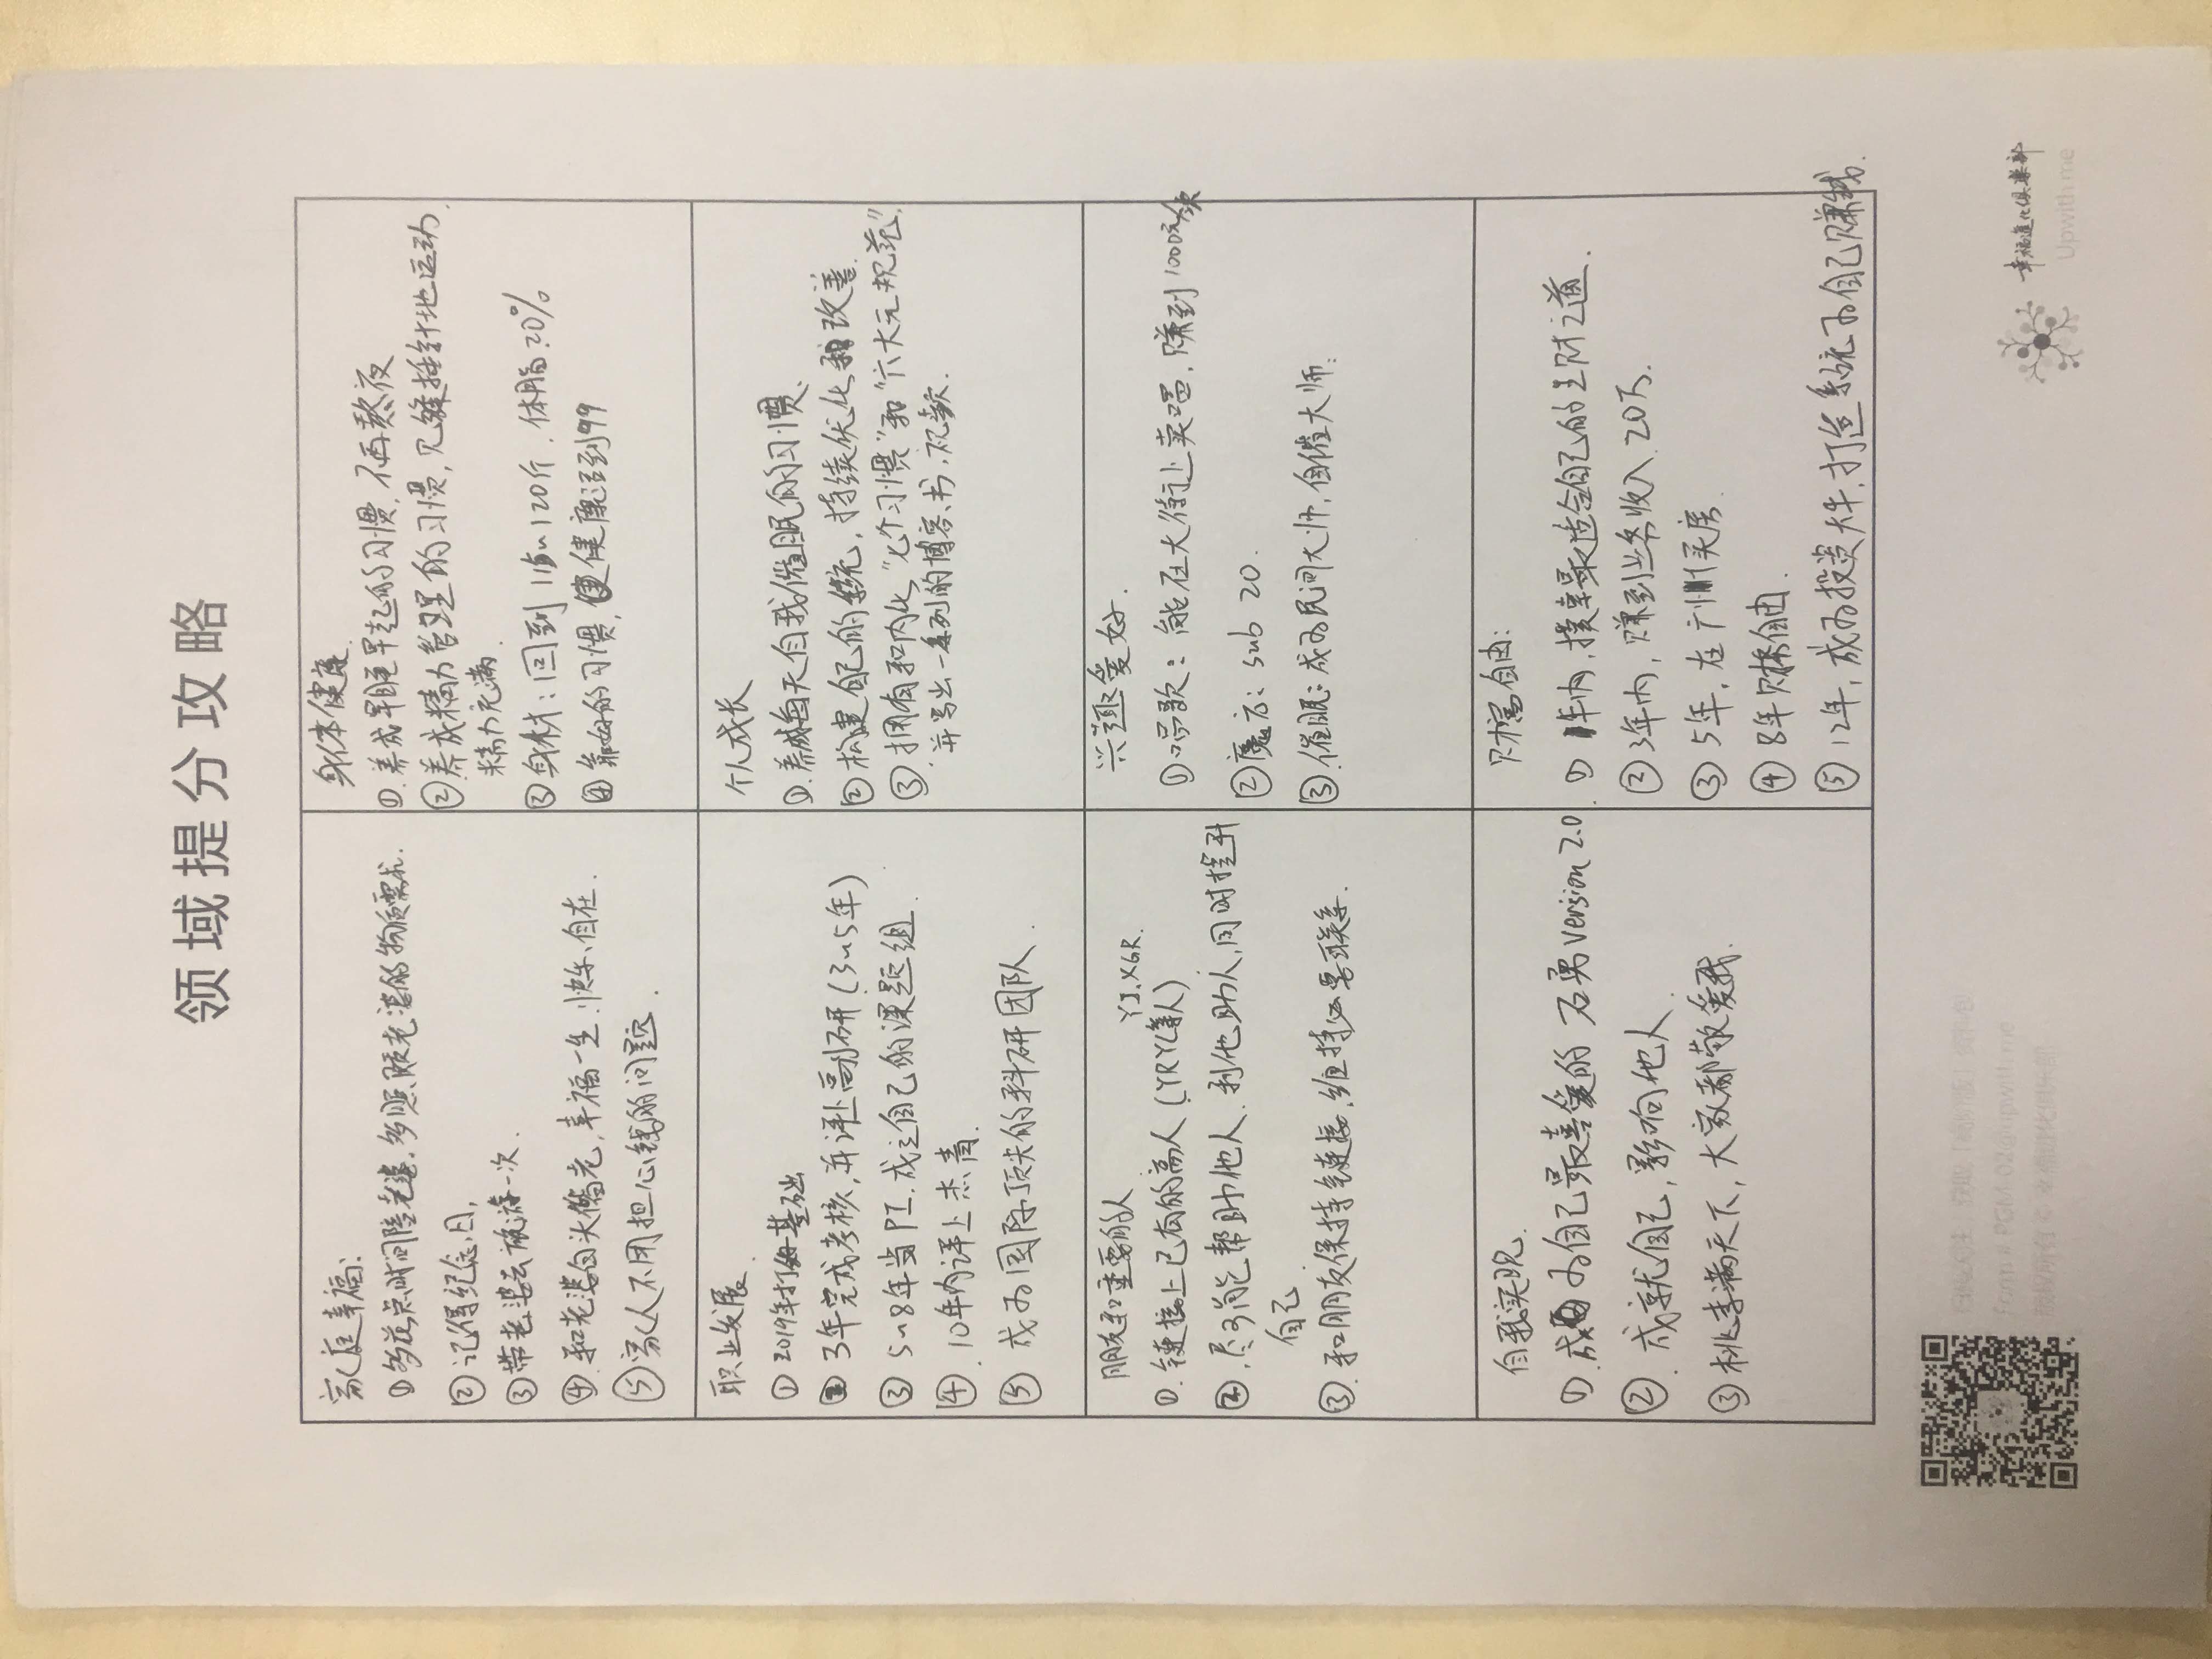 领域提分攻略
家庭幸福:
① 多花点时间陪老婆,多照顾老婆的物质需求.
② 记得纪念日,
③ 带老婆去旅游一次.
④ 和老婆白头偕老,幸福一生.快乐、自在.
⑤ 家人不用担心钱的问题.
身体健康.
①.养成早睡早起的习惯,不再熬夜
②养成精力管理的习惯,见缝插针地运动,
精力充满.
③身材:回到115~120斤.体脂20%
④ 靠好的习惯,健康活到99
职业发展.
① 2019年打好基础
② 3年完成考核,并评上副研(3~5年)
③ 5~8年当PI.成立自己的课题组.
④ 10年内评上杰青.
⑤ 成为国际顶尖的科研团队.
个人成长
①.养成每天自我催眠的习惯.
② 构建自己的系统,持续优化和改善.
③ 拥有和内化"七个习惯"和"六大元规范",
并写出一系列的博客、书、视频.
朋友和重要的人.
YJ.XGR.
①.链接上已有的高人(YRYL等人).
②.尽可能帮助他人.利他助人,同时提升
自己.
③.和朋友保持链接,维持必要联系.
兴趣爱好.
①唱歌:能在大街上卖唱,赚到1000元
②魔方:sub 20.
③.催眠:成为民间大师,自催大师.
自我实现.
①.成为自己最喜爱的 石勇 version 2.0
②.成就自己,影响他人.
③ 桃李满天下,大家都敬爱我.
财富自由:
① 1年内,摸索最适合自己的生财之道.
② 3年内,赚到业务收入20万.
③ 5年,在广州买房.
④ 8年财务自由.
⑤ 12年,成为投资大牛,打造系统为自己赚钱.
扫码关注,获取「高阶版」资料包
Form # PGM-02@upwith.me
版权所有 © 幸福进化俱乐部
幸福進化俱樂部
Upwith.me